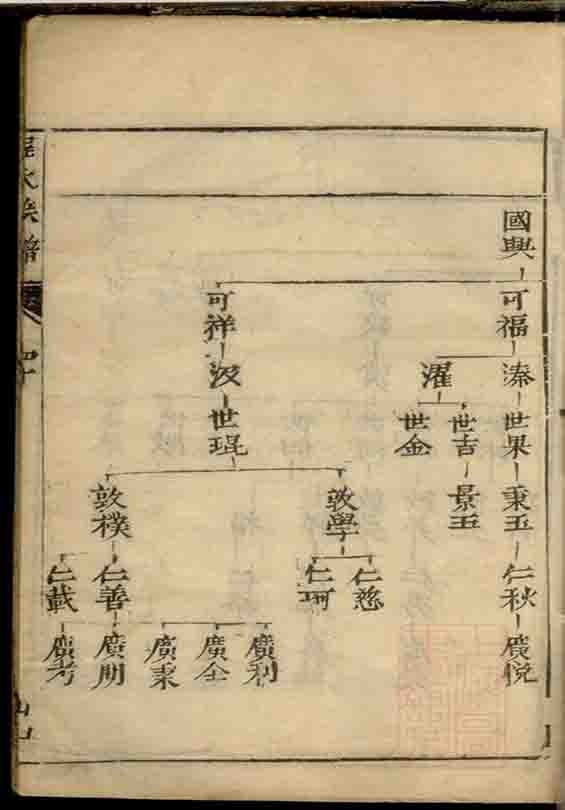 國興
可福
溱
世果
秉玉
仁秋
廣悅
濯
世吉
景玉
世金
可祥
汲
世琨
敦學
仁慈
仁珂
敦樸
仁善
廣利
廣全
廣東
廣朋
仁載
廣考
族譜